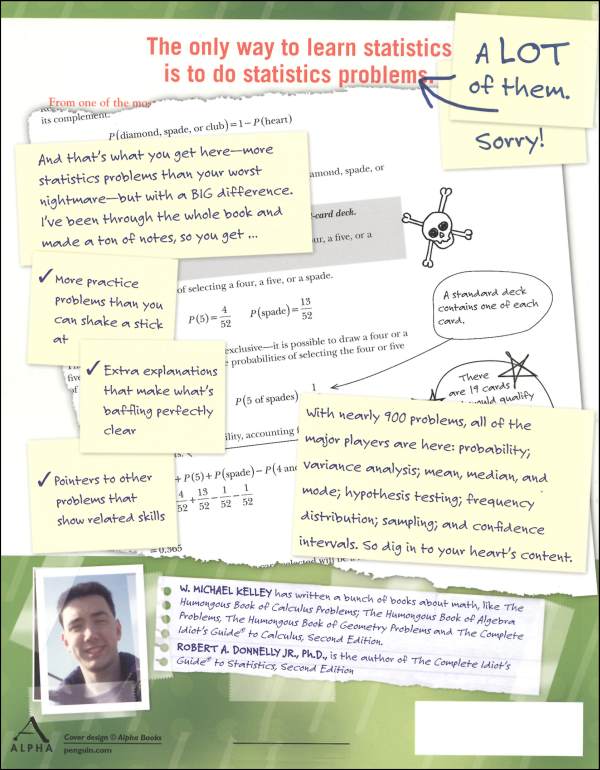 The only way to learn statistics
is to do statistics problems.
A LOT
of them.
Sorry!
From one of the mos
its complement.
P(diamond, spade, or club) = 1 – P(heart)
And that's what you get here—more
statistics problems than your worst
nightmare—but with a BIG difference.
I've been through the whole book and
made a ton of notes, so you get ...
amond, spade, or
-card deck.
ur, a five, or a
✓ More practice
problems than you
can shake a stick
at
of selecting a four, a five, or a spade.
P(5) = 4/52 P(spade) = 13/52
A standard deck
contains one of each
card.
exclusive—it is possible to draw a four or a
probabilities of selecting the four or five
✓ Extra explanations
that make what's
baffling perfectly
clear
P(5 of spades) 1
There
are 19 cards
qualify
With nearly 900 problems, all of the
major players are here: probability;
variance analysis; mean, median, and
mode; hypothesis testing; frequency
distribution; sampling; and confidence
intervals. So dig in to your heart's content.
ility, accounting f
✓ Pointers to other
problems that
show related skills
+ P(5) + P(spade) – P(4 and
4/52 + 13/52 – 1/52 – 1/52
= 0.365
W. MICHAEL KELLEY has written a bunch of books about math, like The
Humongous Book of Calculus Problems; The Humongous Book of Algebra
Problems, The Humongous Book of Geometry Problems and The Complete
Idiot's Guide® to Calculus, Second Edition.
ROBERT A. DONNELLY JR., Ph.D., is the author of The Complete Idiot's
Guide® to Statistics, Second Edition
A
ALPHA
Cover design © Alpha Books
penguin.com